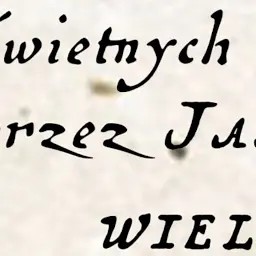 wietnych
rzez JA
WIEL